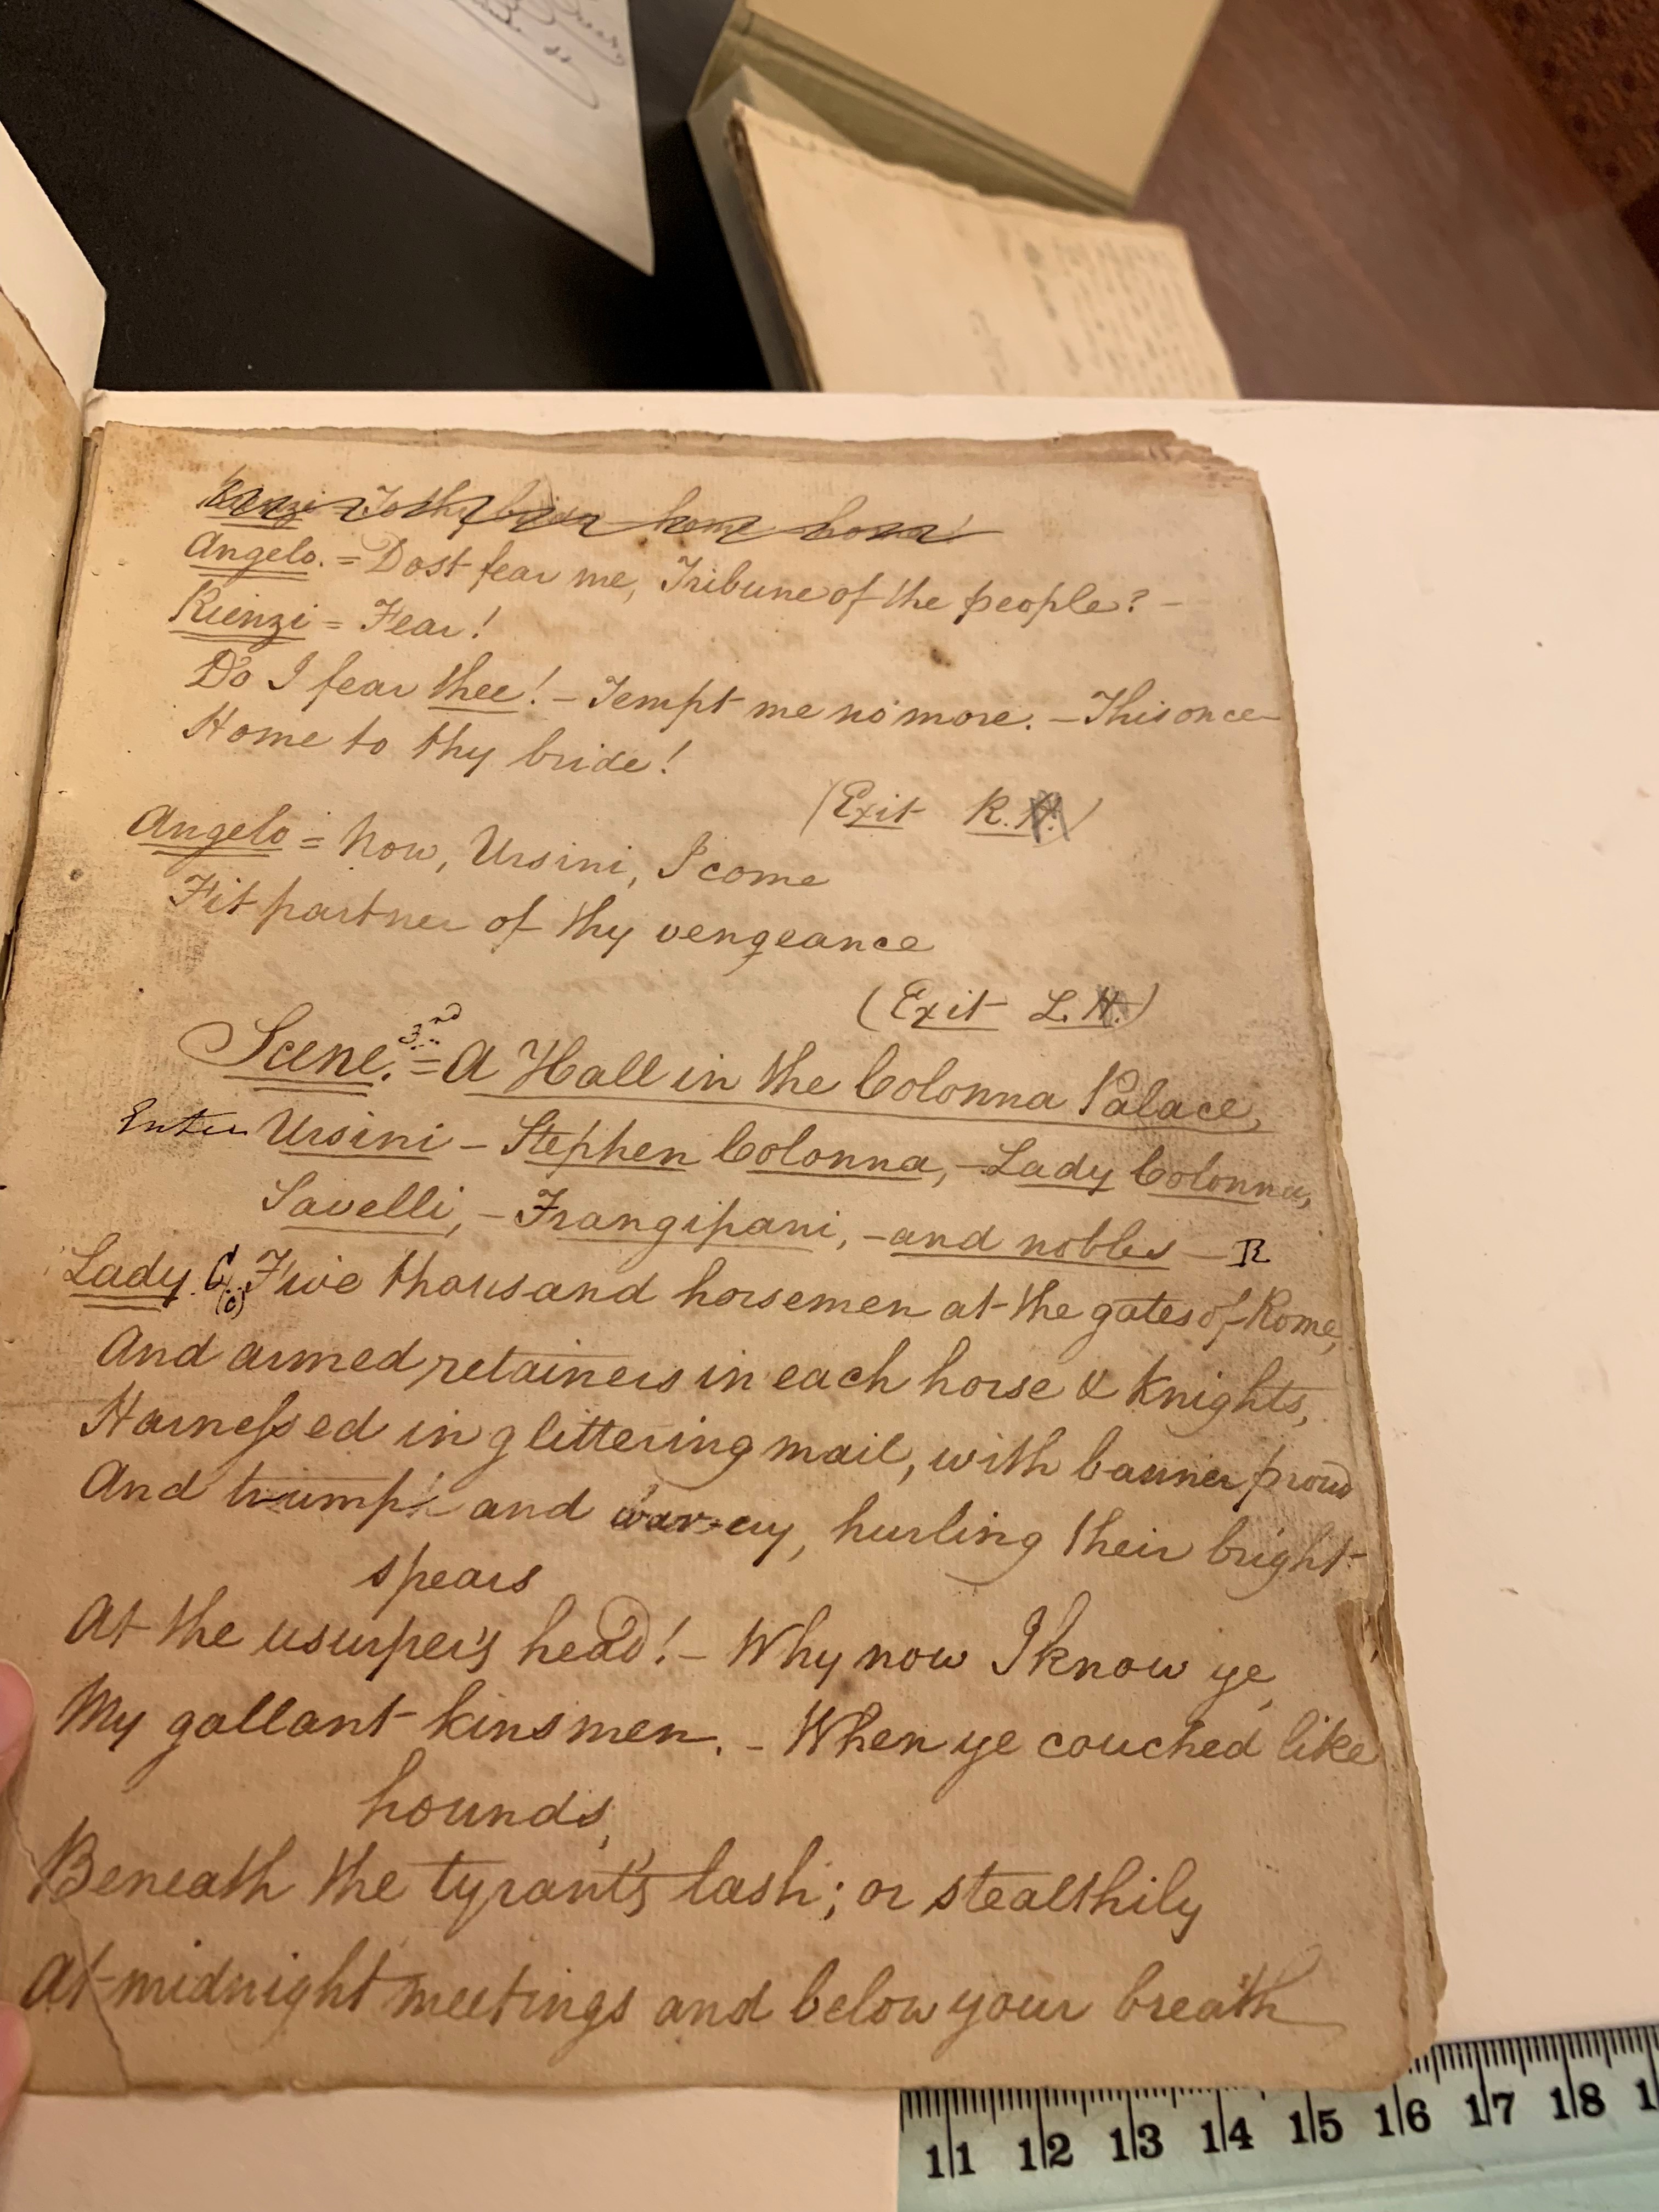 Rienzi = To thy bride home home!
Angelo. = Dost fear me, Tribune of the people? -
Rienzi = Fear!
Do I fear thee! - Tempt me no more. - This once
Home to thy bride!
(Exit R.H.)
Angelo = Now, Ursini, I come
Fit partner of thy vengeance
(Exit L.H.)
Scene. 3rd = A Hall in the Colonna Palace,
Enter Ursini - Stephen Colonna, - Lady Colonna,
Savelli, - Frangipani, - and nobles - R
Lady. C. (C) Five thousand horsemen at the gates of Rome,
And armed retainers in each horse & Knights,
Harnessed in glittering mail, with banner proud
And trump and war-cry, hurling their bright
spears
At the usurper's head! - Why now I know ye,
My gallant kinsmen. - When ye couched like
hounds,
Beneath the tyrant's lash; or stealthily
At midnight meetings and below your breath
11 12 13 14 15 16 17 18 1